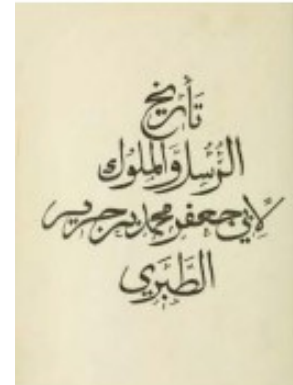 تَأريخ
الرُّسُل وَالملوك
لأبي جعفر محمد بن جرير
الطَّبَري